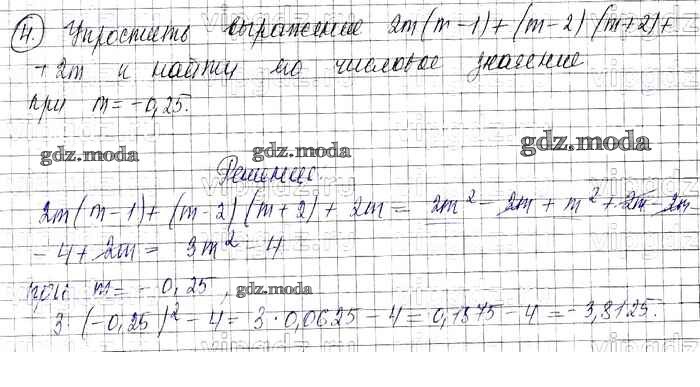 4. Упростить выражение 2m(m-1)+(m-2)(m+2)+
+2m и найти его числовое значение
при m=-0,25.
gdz.moda gdz.moda gdz.moda
Решение:
2m(m-1)+(m-2)(m+2)+2m= 2m²-2m+m²+2m-2m
-4+2m= 3m²-4
при m=-0,25, gdz.moda
3·(-0,25)²-4= 3·0,0625-4=0,1875-4=-3,8125.